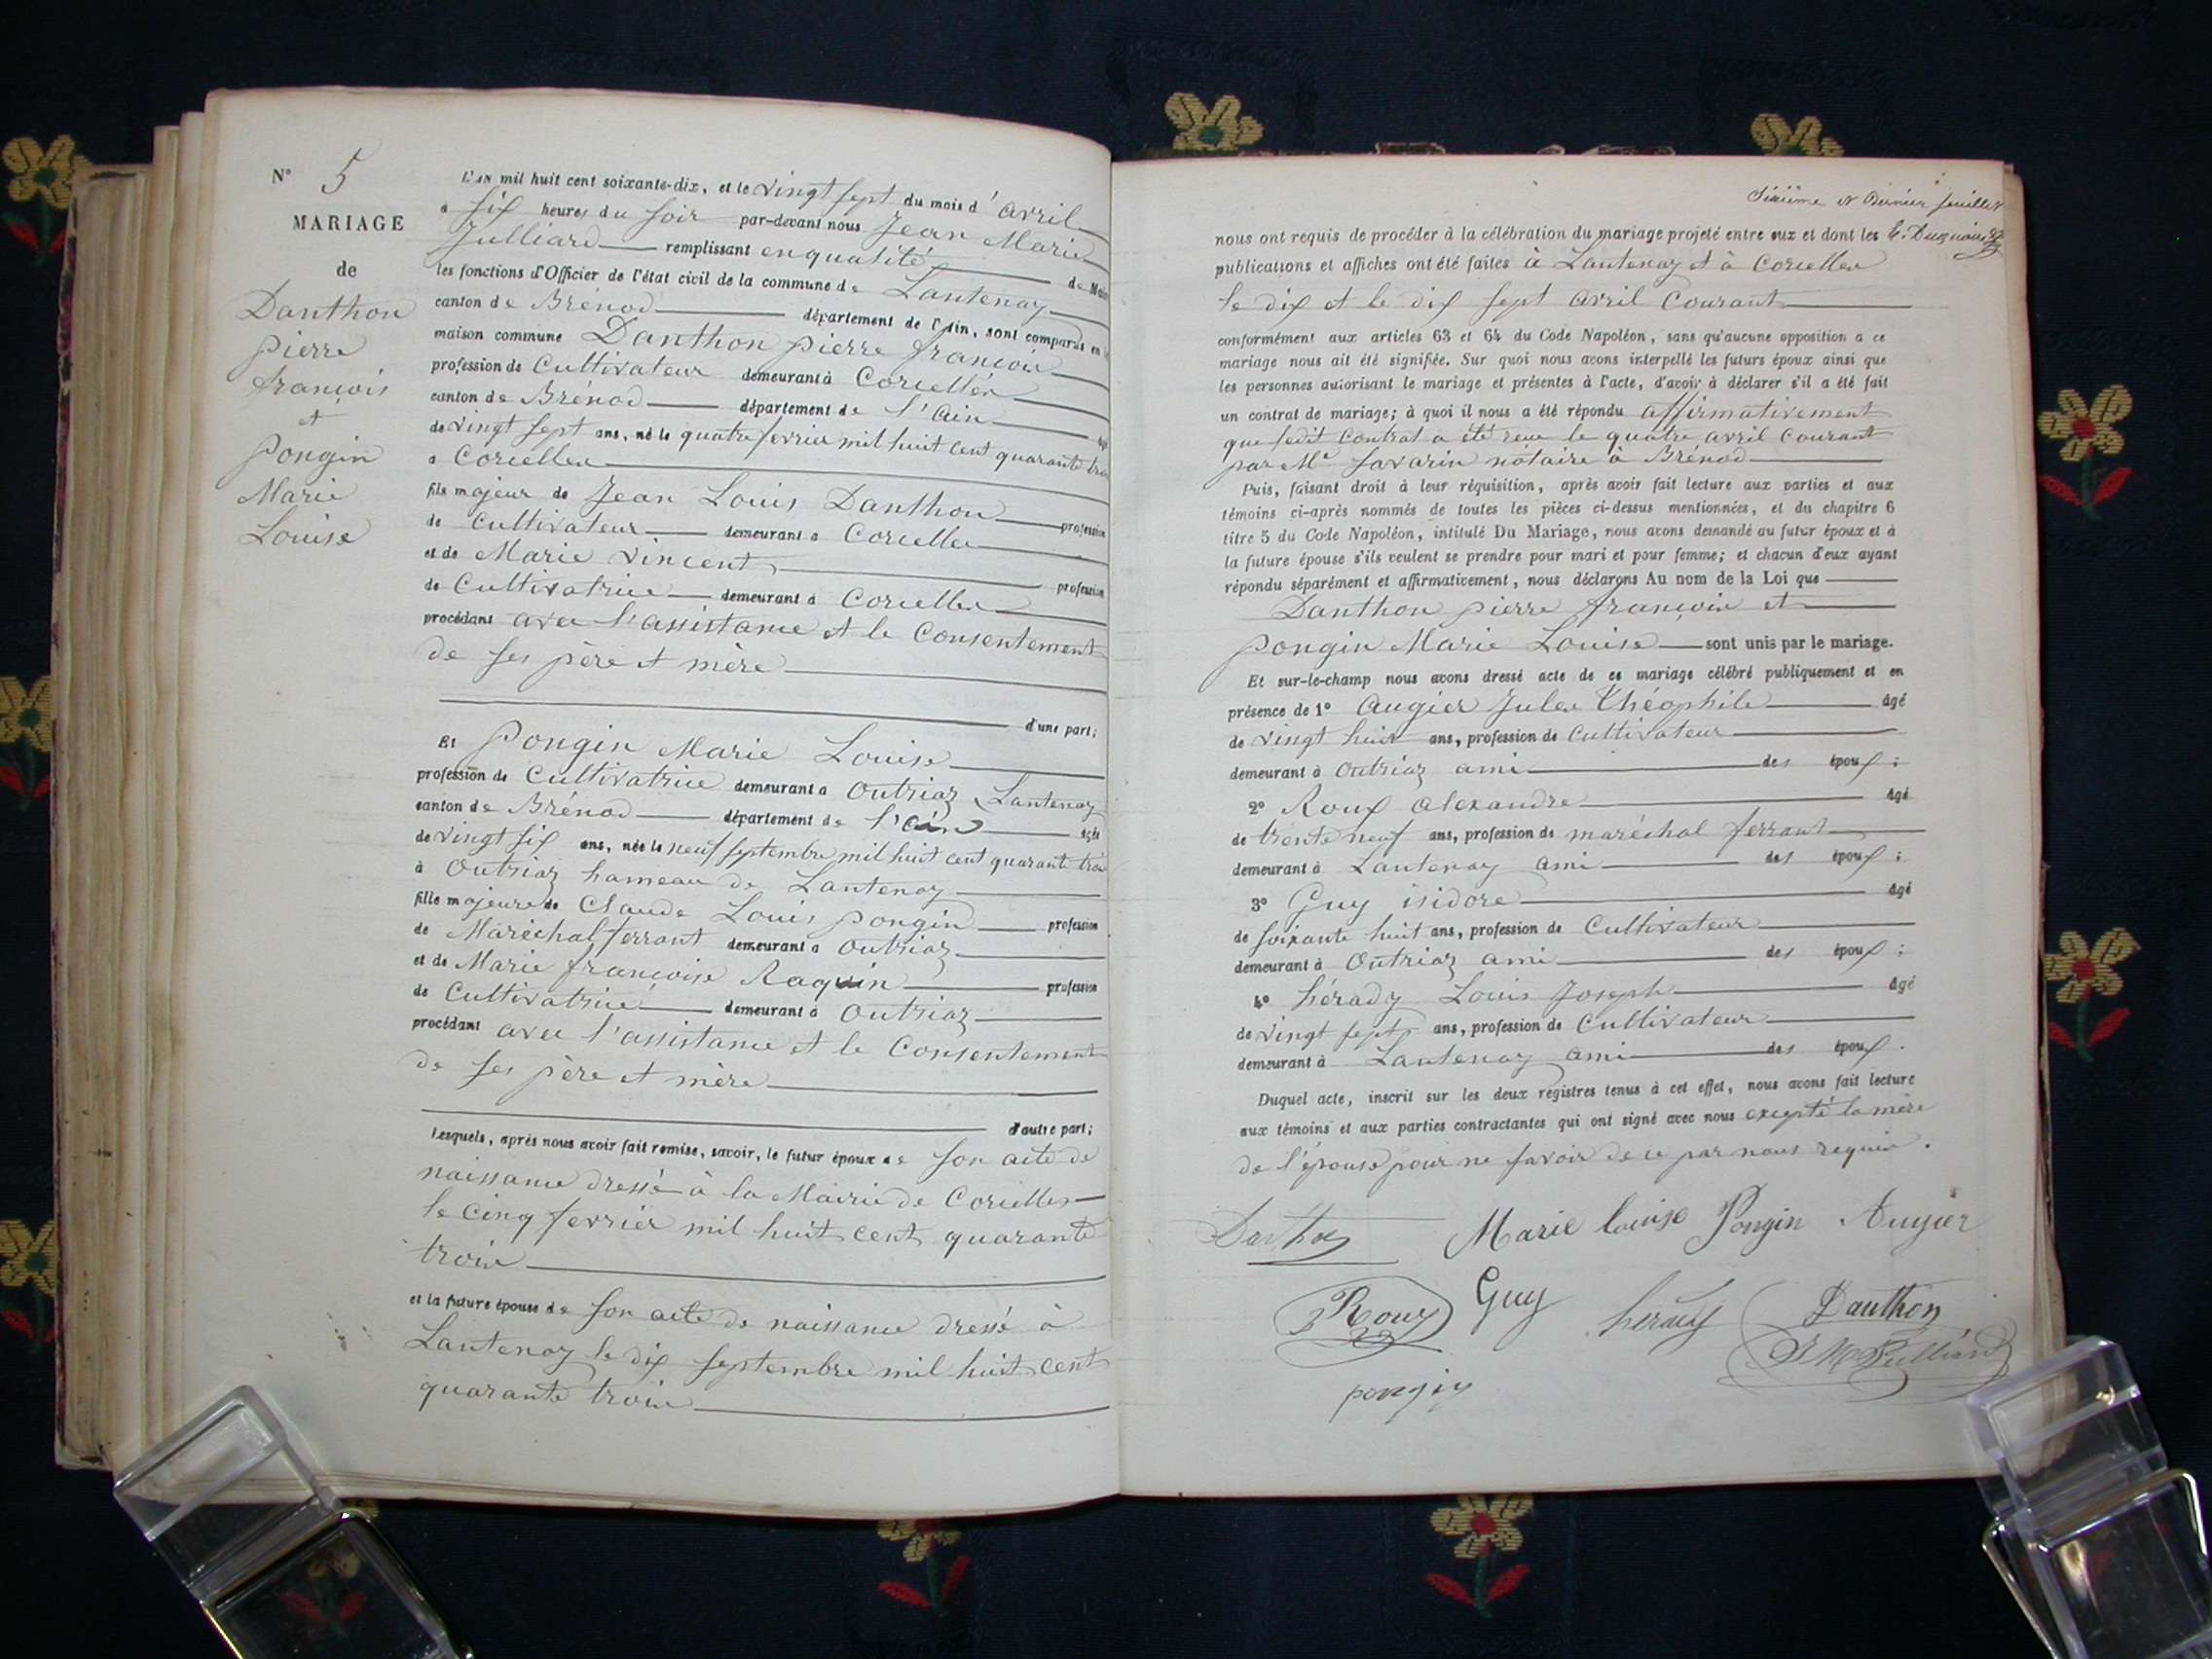 N° 5
MARIAGE
de
Danthon
pierre
françois
et
Pongin
Marie
Louise
L'AN mil huit cent soixante-dix, et le vingt sept du mois d'avril
à six heures du soir par-devant nous Jean Marie
Julliard remplissant en qualité de Maire
les fonctions d'Officier de l'état civil de la commune de Lantenay
canton de Brénod département de l'Ain, sont comparus en la
maison commune Danthon pierre françois
profession de Cultivateur demeurant à Corcelles
canton de Brénod département de l'ain âgé
de vingt sept ans, né le quatre fevrier mil huit cent quarante trois
à Corcelles
fils majeur de Jean Louis Danthon profession
de Cultivateur demeurant à Corcelles
et de Marie Vincent profession
de Cultivatrice demeurant à Corcelles
procédant avec l'assistance et le Consentement
de ses père et mère
d'une part;
Et Pongin Marie Louise
profession de Cultivatrice demeurant à Outriaz, Lantenay
canton de Brénod département de l'ain âgée
de vingt six ans, née le neuf septembre mil huit cent quarante trois
à Outriaz hameau de Lantenay
fille majeure de Claude Louis pongin profession
de Maréchal ferrant demeurant à Outriaz
et de Marie françoise Raquin profession
de Cultivatrice demeurant à Outriaz
procédant avec l'assistance et le Consentement
de ses père et mère
d'autre part;
Lesquels, après nous avoir fait remise, savoir, le futur époux de son acte de
naissance dressé à la Mairie de Corcelles
le cinq fevrier mil huit cent quarante
trois
et la future épouse de son acte de naissance dressé à
Lantenay le dix septembre mil huit cent
quarante trois
Sixième et dernier feuillet
nous ont requis de procéder à la célébration du mariage projeté entre eux et dont les
publications et affiches ont été faites à Lantenay et à Corcelles
le dix et le dix sept avril Courant
conformément aux articles 63 et 64 du Code Napoléon, sans qu'aucune opposition a ce
mariage nous ait été signifiée. Sur quoi nous avons interpellé les futurs époux ainsi que
les personnes autorisant le mariage et présentes à l'acte, d'avoir à déclarer s'il a été fait
un contrat de mariage; à quoi il nous a été répondu affirmativement
que ledit Contrat a été reçu le quatre avril Courant
par Me Savarin notaire à Brénod
Puis, faisant droit à leur réquisition, après avoir fait lecture aux parties et aux
témoins ci-après nommés de toutes les pièces ci-dessus mentionnées, et du chapitre 6
titre 5 du Code Napoléon, intitulé Du Mariage, nous avons demandé au futur époux et à
la future épouse s'ils veulent se prendre pour mari et pour femme; et chacun d'eux ayant
répondu séparément et affirmativement, nous déclarons Au nom de la Loi que
Danthon pierre françois et
pongin Marie Louise sont unis par le mariage.
Et sur-le-champ nous avons dressé acte de ce mariage célébré publiquement et en
présence de 1° Augier Jules Théophile âgé
de vingt huit ans, profession de Cultivateur
demeurant à Outriaz ami des époux;
2° Roux alexandre âgé
de trente neuf ans, profession de maréchal ferrant
demeurant à Lantenay ami des époux;
3° Guy isidore âgé
de soixante huit ans, profession de Cultivateur
demeurant à Outriaz ami des époux;
4° hérady Louis Joseph âgé
de vingt sept ans, profession de Cultivateur
demeurant à Lantenay ami des époux.
Duquel acte, inscrit sur les deux registres tenus à cet effet, nous avons fait lecture
aux témoins et aux parties contractantes qui ont signé avec nous excepté la mère
de l'épouse pour ne savoir de ce par nous requis.
Danthon Marie louise Pongin Augier
Roux Guy herady Danthon
J M Julliard
pongin